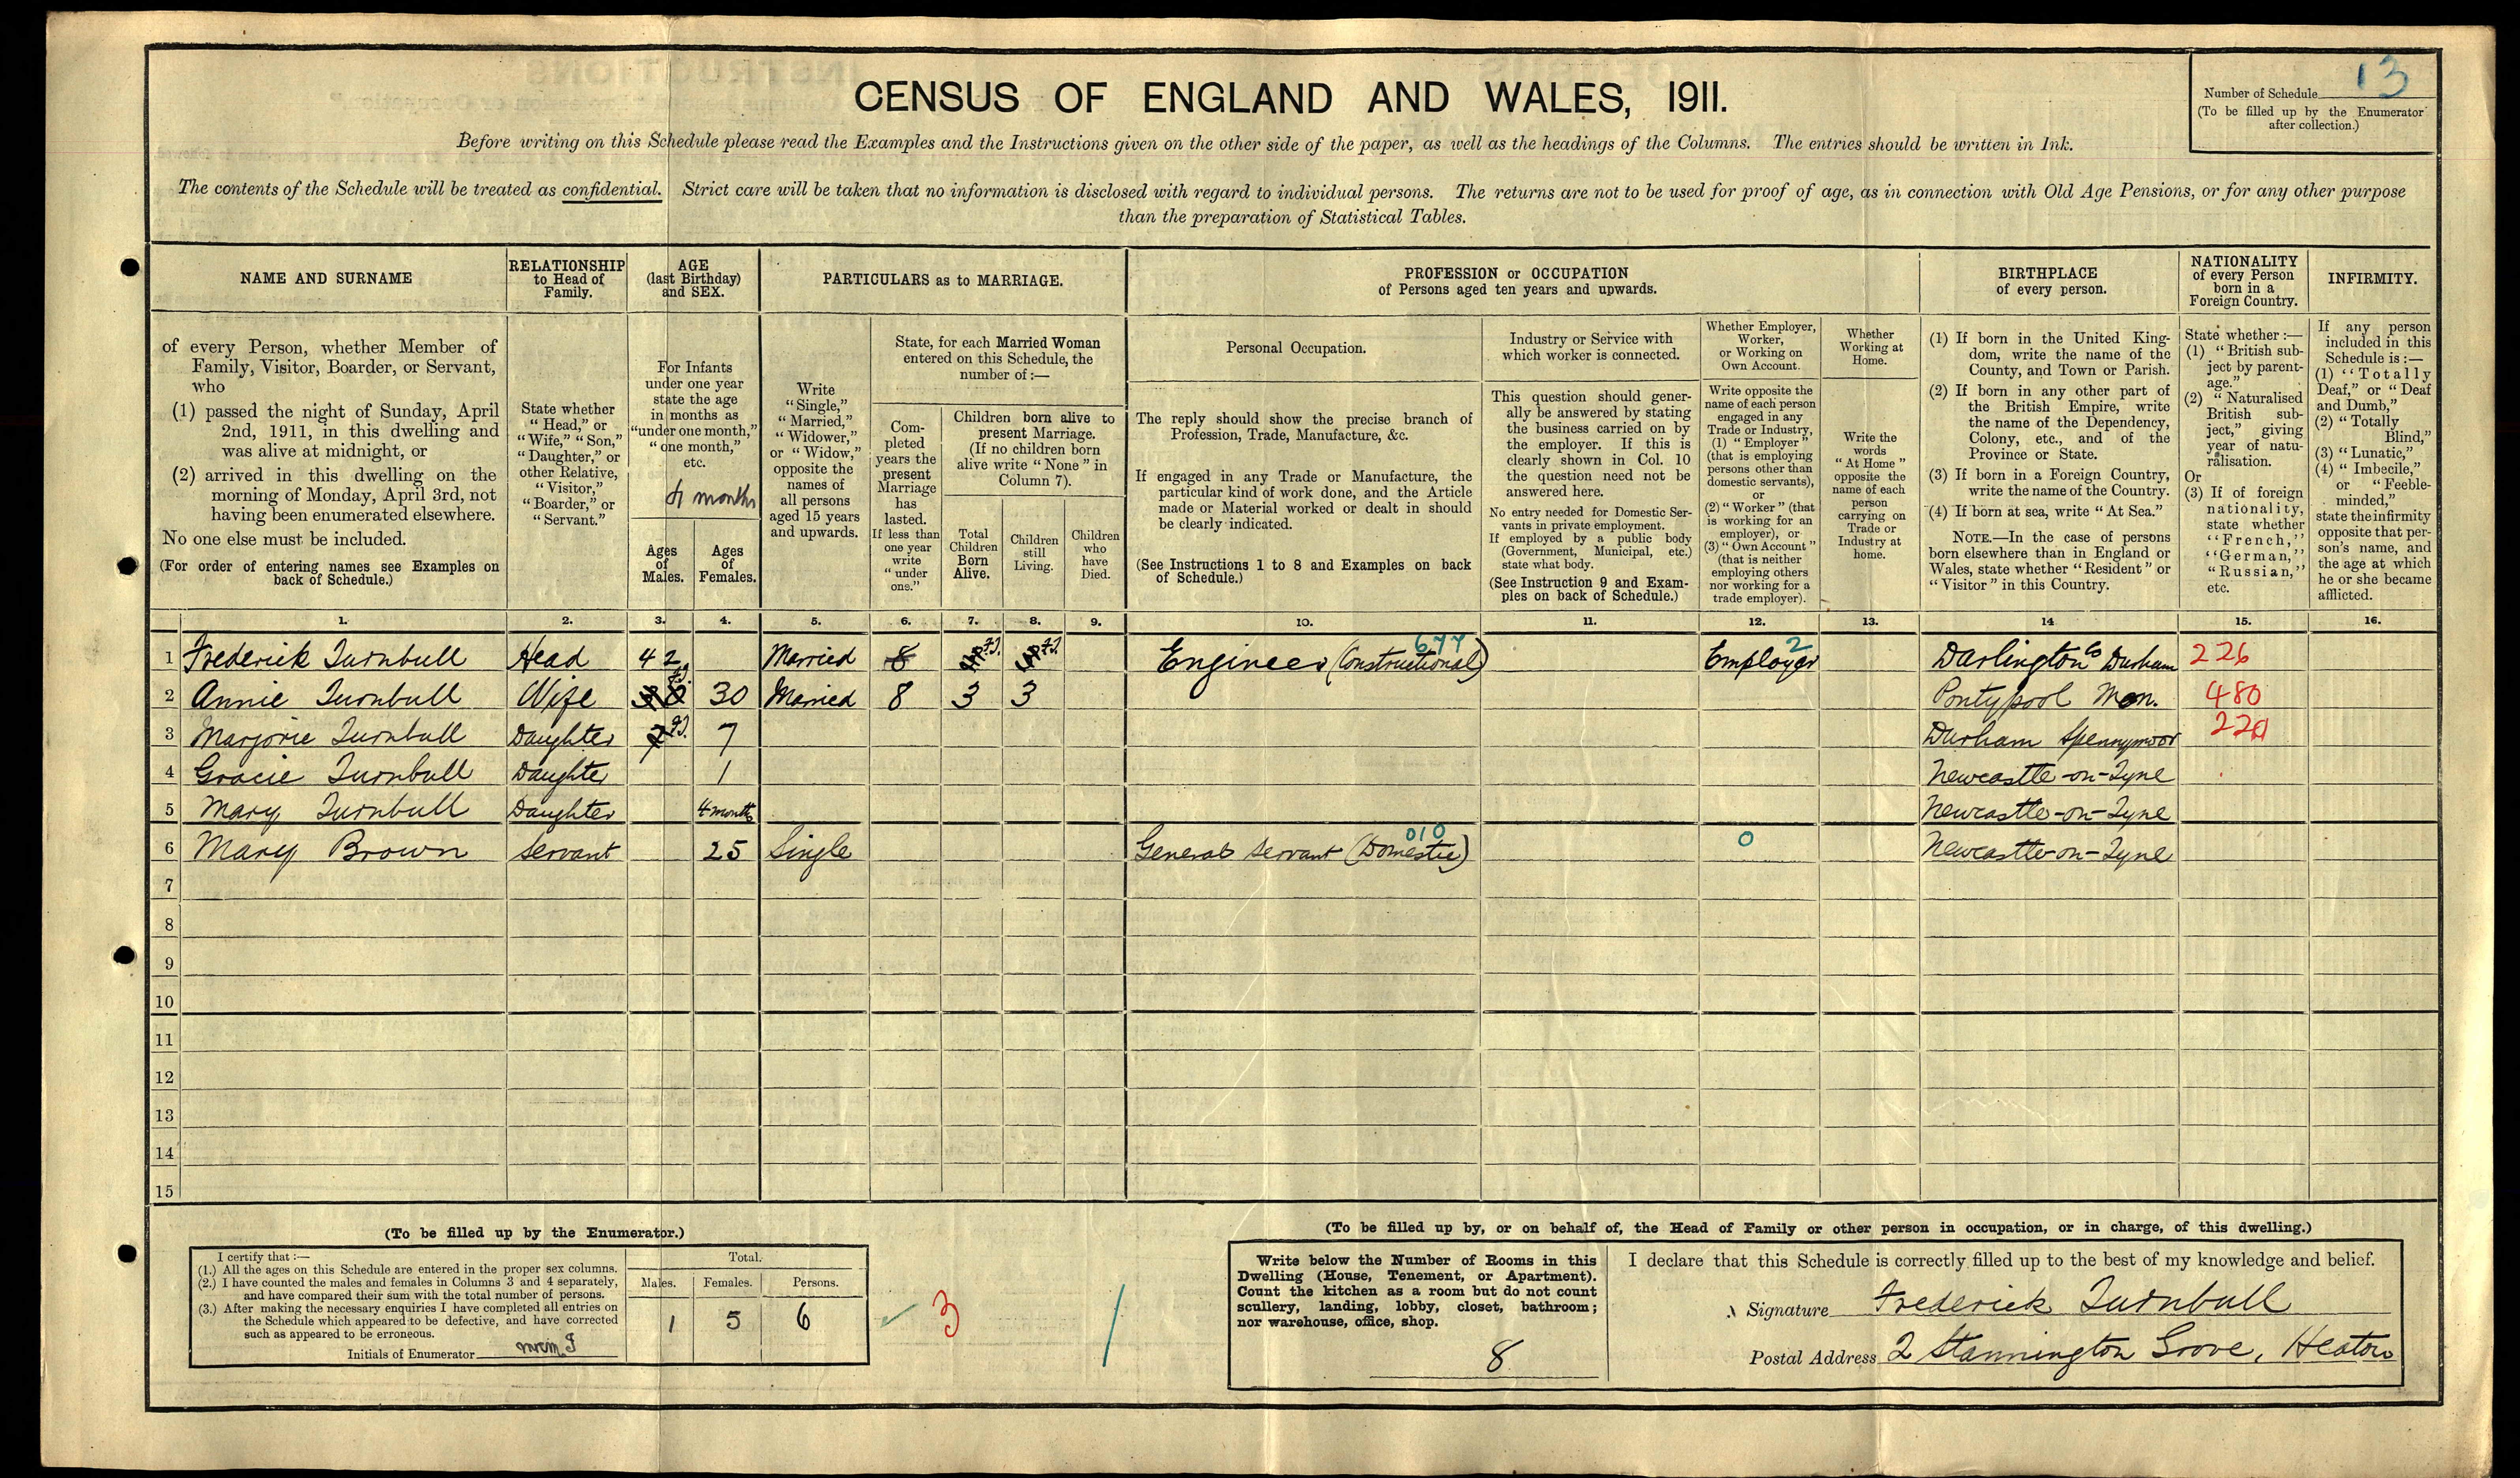 CENSUS OF ENGLAND AND WALES, 1911.
Number of Schedule 13
(To be filled up by the Enumerator after collection.)
Before writing on this Schedule please read the Examples and the Instructions given on the other side of the paper, as well as the headings of the Columns. The entries should be written in Ink.
The contents of the Schedule will be treated as confidential. Strict care will be taken that no information is disclosed with regard to individual persons. The returns are not to be used for proof of age, as in connection with Old Age Pensions, or for any other purpose
than the preparation of Statistical Tables.
NAME AND SURNAME
of every Person, whether Member of
Family, Visitor, Boarder, or Servant,
who
(1) passed the night of Sunday, April
2nd, 1911, in this dwelling and
was alive at midnight, or
(2) arrived in this dwelling on the
morning of Monday, April 3rd, not
having been enumerated elsewhere.
No one else must be included.
(For order of entering names see Examples on
back of Schedule.)
RELATIONSHIP
to Head of
Family.
State whether
"Head," or
"Wife," "Son,"
"Daughter," or
other Relative,
"Visitor,"
"Boarder," or
"Servant."
AGE
(last Birthday)
and SEX.
For Infants
under one year
state the age
in months as
"under one month,"
"one month,"
etc.
4 months
Ages
of
Males.
Ages
of
Females.
PARTICULARS as to MARRIAGE.
Write
"Single,"
"Married,"
"Widower,"
or "Widow,"
opposite the
names of
all persons
aged 15 years
and upwards.
State, for each Married Woman
entered on this Schedule, the
number of:—
Com-
pleted
years the
present
Marriage
has
lasted.
If less than
one year
write
"under
one."
Children born alive to
present Marriage.
(If no children born
alive write "None" in
Column 7).
Total
Children
Born
Alive.
Children
still
Living.
Children
who
have
Died.
PROFESSION or OCCUPATION
of Persons aged ten years and upwards.
Personal Occupation.
The reply should show the precise branch of
Profession, Trade, Manufacture, &c.
If engaged in any Trade or Manufacture, the
particular kind of work done, and the Article
made or Material worked or dealt in should
be clearly indicated.
(See Instructions 1 to 8 and Examples on back
of Schedule.)
Industry or Service with
which worker is connected.
This question should gener-
ally be answered by stating
the business carried on by
the employer. If this is
clearly shown in Col. 10
the question need not be
answered here.
No entry needed for Domestic Ser-
vants in private employment.
If employed by a public body
(Government, Municipal, etc.)
state what body.
(See Instruction 9 and Exam-
ples on back of Schedule.)
Whether Employer,
Worker,
or Working on
Own Account.
Write opposite the
name of each person
engaged in any
Trade or Industry,
(1) "Employer"
(that is employing
persons other than
domestic servants),
or
(2) "Worker" (that
is working for an
employer), or
(3) "Own Account"
(that is neither
employing others
nor working for a
trade employer).
Whether
Working at
Home.
Write the
words
"At Home"
opposite the
name of each
person
carrying on
Trade or
Industry at
home.
BIRTHPLACE
of every person.
(1) If born in the United King-
dom, write the name of the
County, and Town or Parish.
(2) If born in any other part of
the British Empire, write
the name of the Dependency,
Colony, etc., and of the
Province or State.
(3) If born in a Foreign Country,
write the name of the Country.
(4) If born at sea, write "At Sea."
NOTE.—In the case of persons
born elsewhere than in England or
Wales, state whether "Resident" or
"Visitor" in this Country.
NATIONALITY
of every Person
born in a
Foreign Country.
State whether:—
(1) "British sub-
ject by parent-
age."
(2) "Naturalised
British sub-
ject," giving
year of natu-
ralisation.
Or
(3) If of foreign
nationality,
state whether
"French,"
"German,"
"Russian,"
etc.
INFIRMITY.
If any person
included in this
Schedule is:—
(1) "Totally
Deaf," or "Deaf
and Dumb,"
(2) "Totally
Blind,"
(3) "Lunatic,"
(4) "Imbecile,"
or "Feeble-
minded,"
state the infirmity
opposite that per-
son's name, and
the age at which
he or she became
afflicted.
1. 2. 3. 4. 5. 6. 7. 8. 9. 10. 11. 12. 13. 14 15. 16.
1 Frederick Turnbull Head 42 Married 8 Engineer (Constructional) 677 Employer 2 Darlington Co Durham 226
2 Annie Turnbull Wife 30 Married 8 3 3 Pontypool Mon. 480
3 Marjorie Turnbull Daughter 7 Durham Spennymoor
4 Gracie Turnbull Daughter 1 Newcastle-on-Tyne
5 Mary Turnbull Daughter 4 months Newcastle-on-Tyne
6 Mary Brown Servant 25 Single General Servant (Domestic) 010 0 Newcastle-on-Tyne
7
8
9
10
11
12
13
14
15
(To be filled up by the Enumerator.)
I certify that:—
(1.) All the ages on this Schedule are entered in the proper sex columns.
(2.) I have counted the males and females in Columns 3 and 4 separately,
and have compared their sum with the total number of persons.
(3.) After making the necessary enquiries I have completed all entries on
the Schedule which appeared to be defective, and have corrected
such as appeared to be erroneous.
Initials of Enumerator
Total.
Males. Females. Persons.
1 5 6
3
(To be filled up by, or on behalf of, the Head of Family or other person in occupation, or in charge, of this dwelling.)
Write below the Number of Rooms in this
Dwelling (House, Tenement, or Apartment).
Count the kitchen as a room but do not count
scullery, landing, lobby, closet, bathroom;
nor warehouse, office, shop.
8
I declare that this Schedule is correctly filled up to the best of my knowledge and belief.
Signature Frederick Turnbull
Postal Address 2 Stannington Grove, Heaton